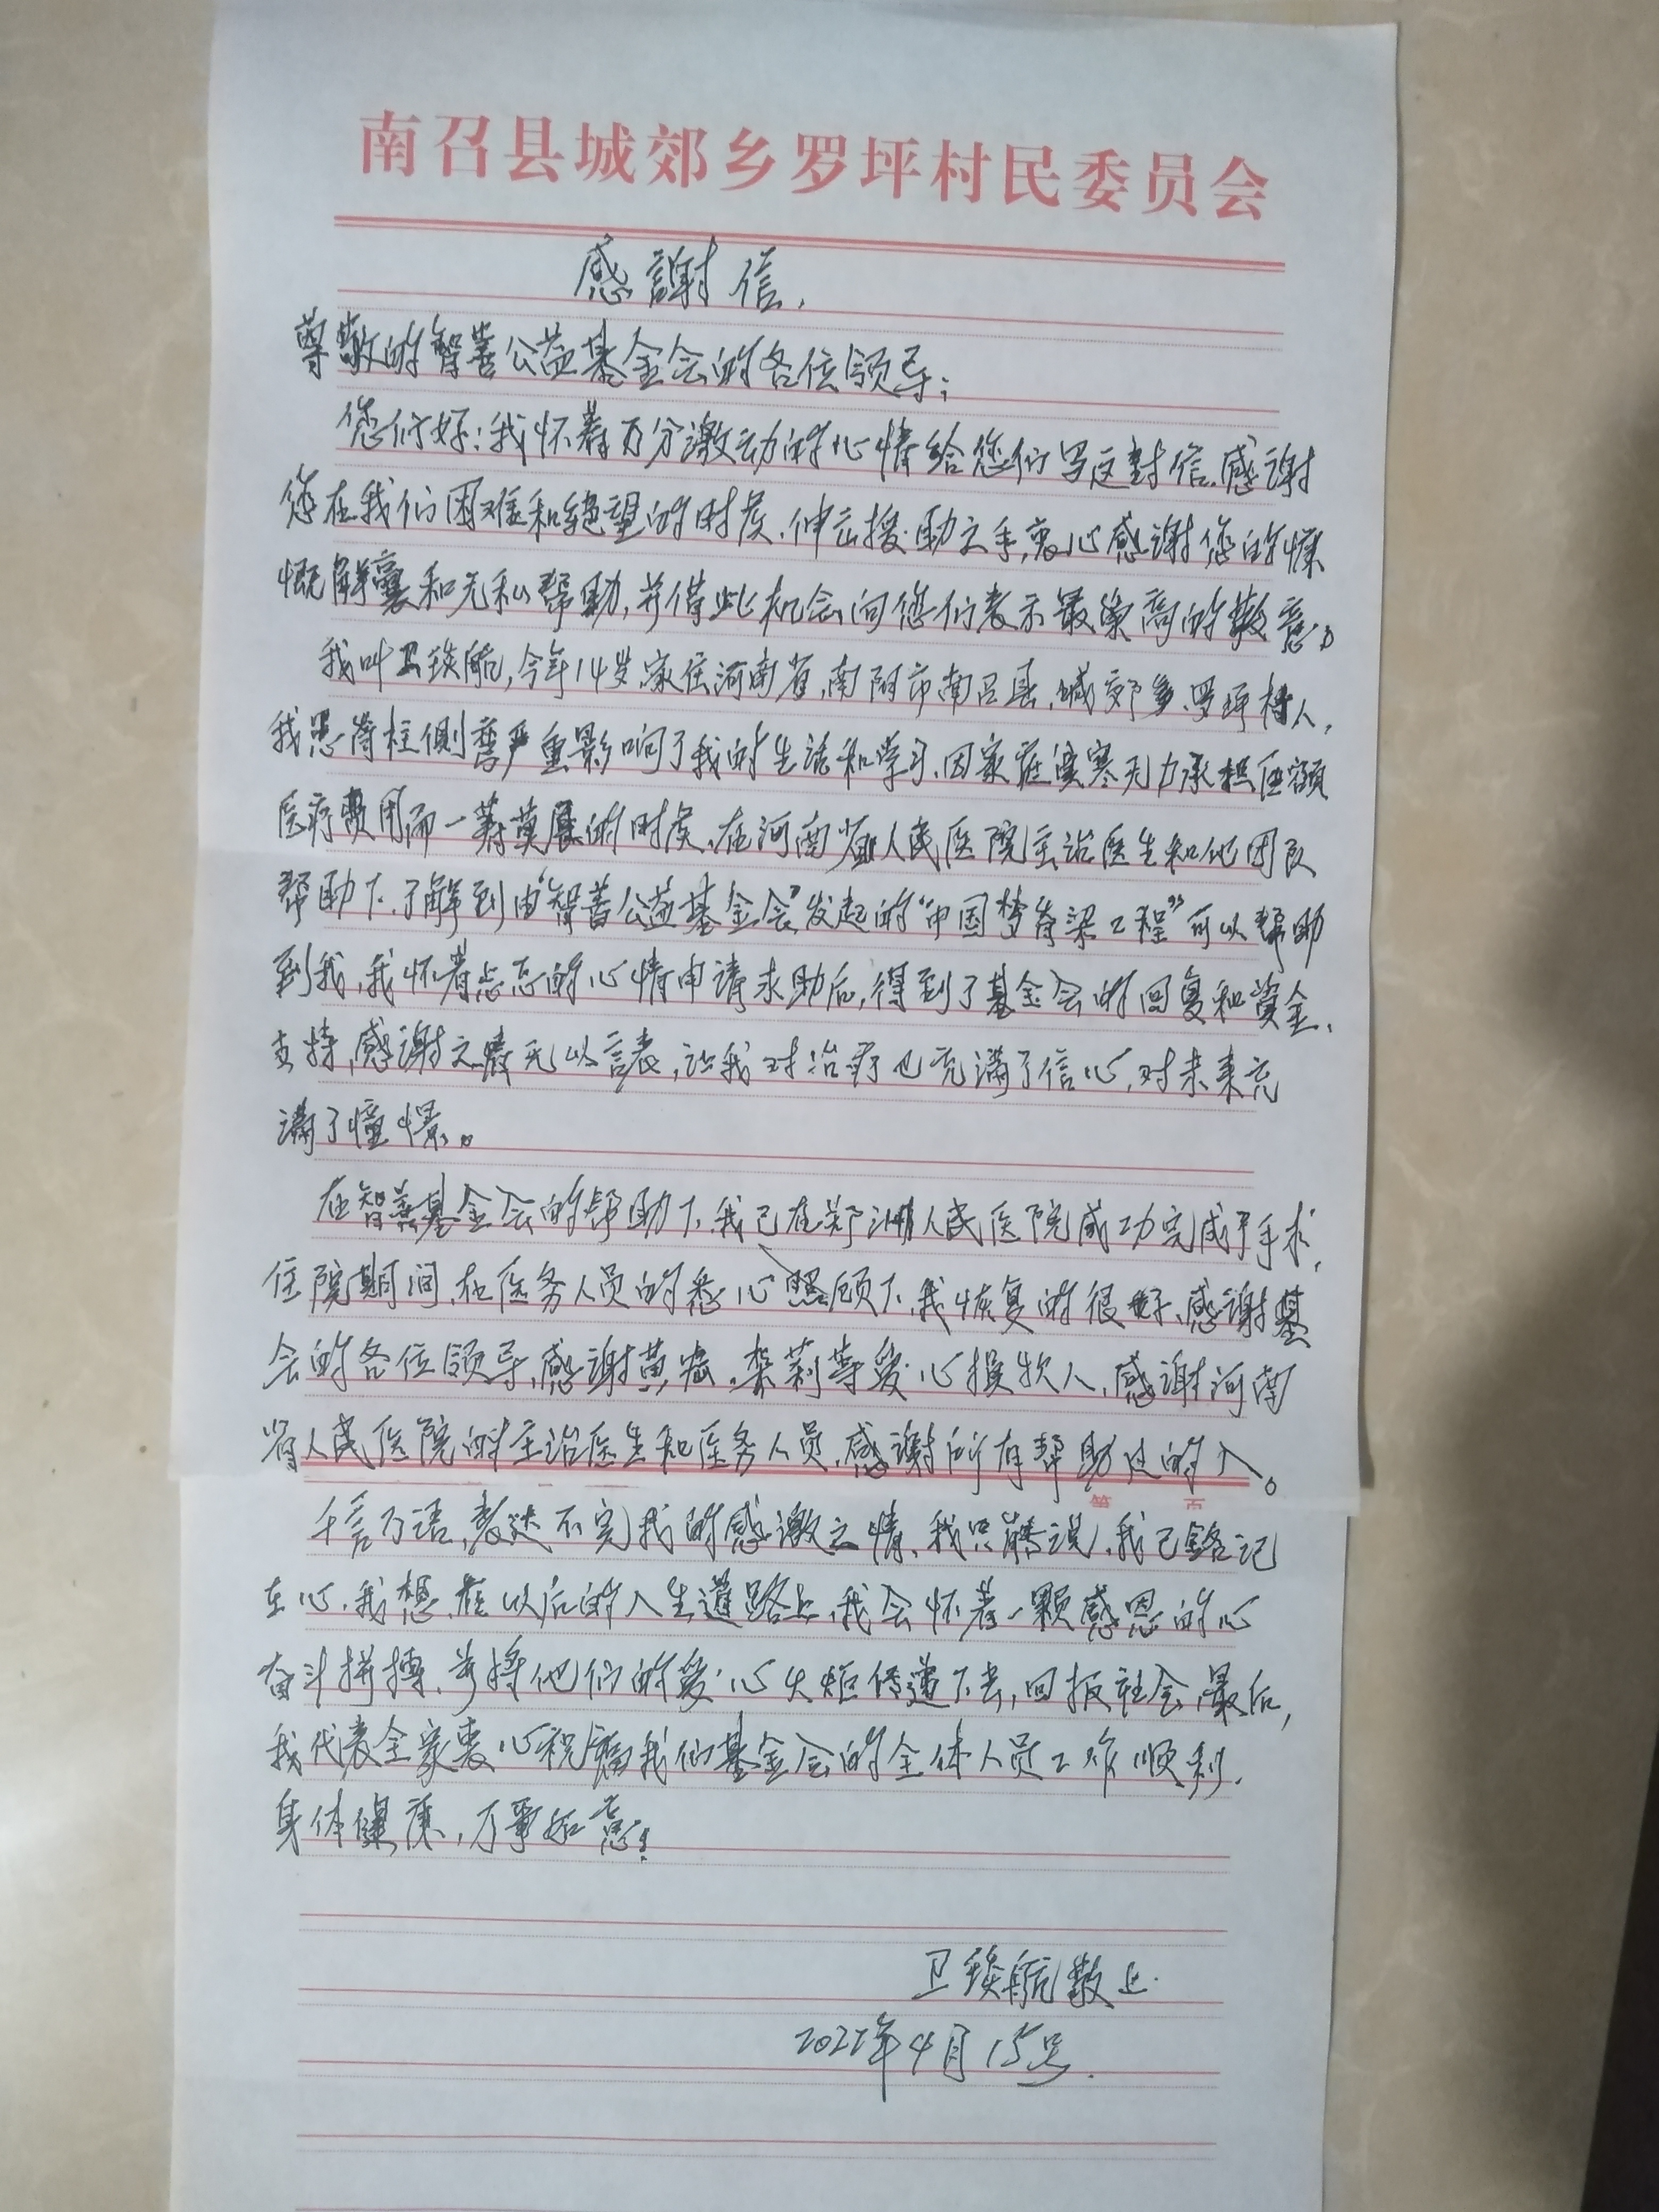 南召县城郊乡罗坪村民委员会
感謝信.
尊敬的智善公益基金会的各位领导:
您们好:我怀着万分激动的心情给您们写这封信.感谢
您在我们困难和绝望的时候.伸出援助之手,衷心感谢您的慷
慨解囊和无私帮助,并借此机会向您们表示最崇高的敬意。
我叫卫琰航,今年14岁,家住河南省,南阳市南召县.城郊乡.罗坪村人,
我患脊柱侧弯严重影响了我的生活和学习.因家庭贫寒无力承担巨额
医疗费用而一筹莫展的时候.在河南省人民医院主治医生和他团队
帮助下.了解到由“智善公益基金会”发起的“中国梦脊梁工程”可以帮助
到我,我怀着忐忑的心情申请求助后,得到了基金会的回复和资金.
支持,感谢之情无以言表,让我对治疗也充满了信心,对未来充
满了憧憬。
在智善基金会的帮助下.我已在郑州人民医院成功完成了手术,
住院期间.在医务人员的悉心照顾下.我恢复的很好.感谢基
会的各位领导,感谢黄.莉等爱心捐款人.感谢河南
省人民医院的主治医生和医务人员.感谢所有帮助过的人。
第 页
千言万语,表达不完我的感激之情.我只能说.我已铭记
在心.我想.在以后的人生道路上.我会怀着一颗感恩的心
奋斗拼搏.并将他们的爱心火炬传递下去,回报社会.最后,
我代表全家衷心祝福我们基金会的全体人员工作顺利.
身体健康,万事如意!
卫琰航敬上.
2022年4月15号.